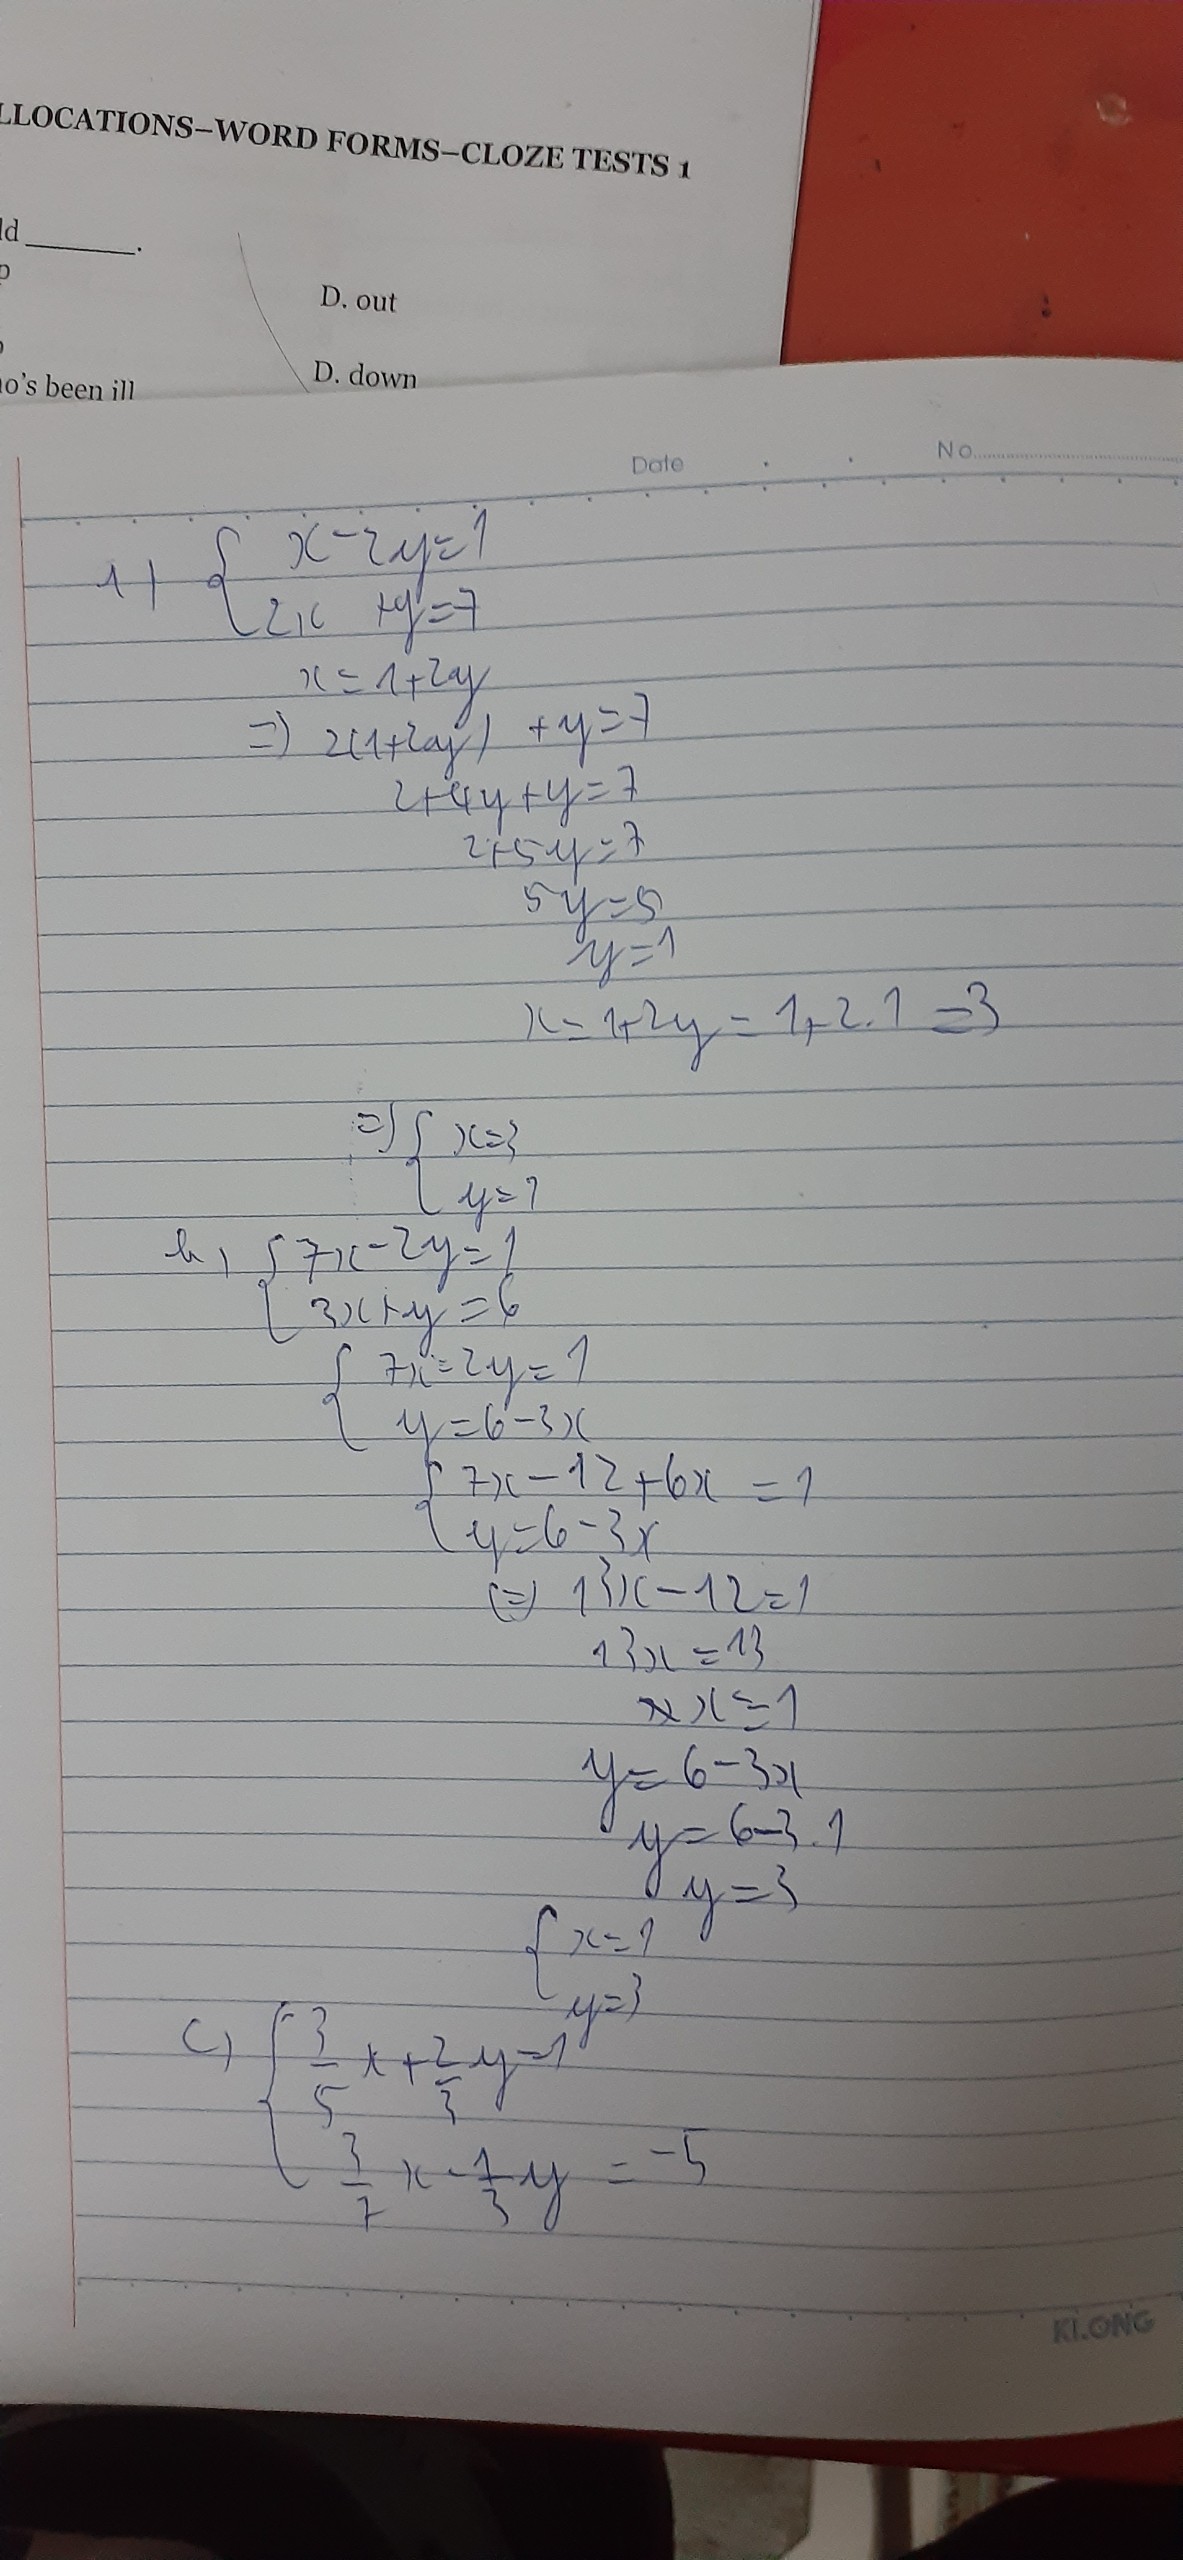 LLOCATIONS–WORD FORMS–CLOZE TESTS 1
ld ______.
p
D. out
o's been ill
D. down
Date
No
1) { x - 2y = 1
2x + y = 7
x = 1 + 2y
=) 2(1+2y) + y = 7
2 + 4y + y = 7
2 + 5y = 7
5y = 5
y = 1
x = 1 + 2y = 1 + 2.1 = 3
=) { x = 3
y = 1
b, { 7x - 2y = 1
3x + y = 6
{ 7x - 2y = 1
y = 6 - 3x
{ 7x - 12 + 6x = 1
y = 6 - 3x
(=) 13x - 12 = 1
13x = 13
x = 1
y = 6 - 3x
y = 6 - 3.1
y = 3
{ x = 1
y = 3
C, { 3/5 x + 2/3 y = 1
3/7 x - 1/3 y = -5
KLONG